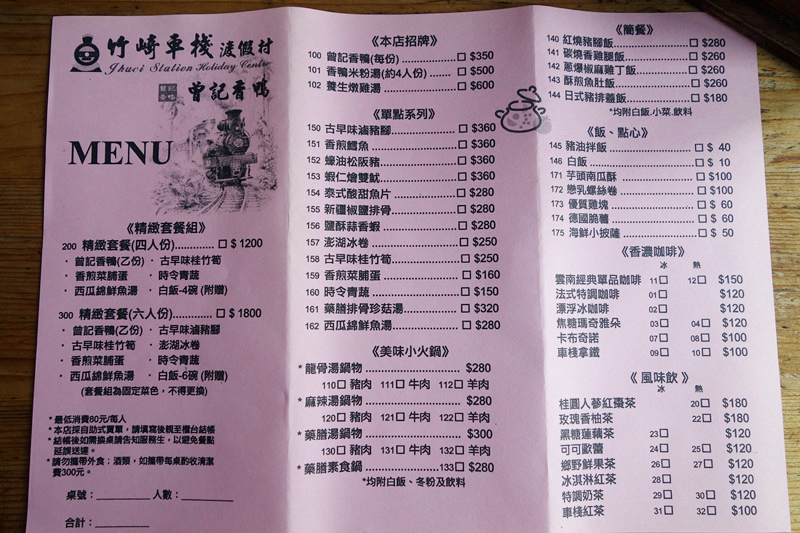 竹崎車棧 渡假村
Jhuci Station Holiday Centre
曾記香鴨
MENU
《精緻套餐組》
200 精緻套餐(四人份)............ □ $ 1200
・曾記香鴨(乙份) ・古早味桂竹筍
・香煎菜脯蛋 ・時令青蔬
・西瓜綿鮮魚湯 ・白飯-4碗 (附贈)
300 精緻套餐(六人份)............ □ $ 1800
・曾記香鴨(乙份) ・古早味滷豬腳
・古早味桂竹筍 ・澎湖冰卷
・香煎菜脯蛋 ・時令青蔬
・西瓜綿鮮魚湯 ・白飯-6碗 (附贈)
(套餐組為固定菜色，不得更換)
*最低消費80元/每人
*本店採自助式買單，請填寫後親至櫃台結帳
*結帳後如需換桌請告知服務生，以避免餐點
延誤送達。
*請勿攜帶外食；酒類，如攜帶每桌酌收清潔
費300元。
桌號：________ 人數：________
合計：________
《本店招牌》
100 曾記香鴨(每份) □ $350
101 香鴨米粉湯(約4人份) □ $500
102 養生燉雞湯 □ $600
《單點系列》
150 古早味滷豬腳 □ $360
151 香煎鱈魚 □ $360
152 蠔油松阪豬 □ $360
153 蝦仁燴雙魷 □ $360
154 泰式酸甜魚片 □ $280
155 新疆椒鹽排骨 □ $280
156 鹽酥蒜香蝦 □ $280
157 澎湖冰卷 □ $250
158 古早味桂竹筍 □ $250
159 香煎菜脯蛋 □ $160
160 時令青蔬 □ $150
161 藥膳排骨珍菇湯 □ $320
162 西瓜綿鮮魚湯 □ $280
《美味小火鍋》
*龍骨湯鍋物 $280
110□ 豬肉 111□ 牛肉 112□ 羊肉
*麻辣湯鍋物 $280
120□ 豬肉 121□ 牛肉 122□ 羊肉
*藥膳湯鍋物 $300
130□ 豬肉 131□ 牛肉 132□ 羊肉
*藥膳素食鍋 133□ $280
*均附白飯、冬粉及飲料
《簡餐》
140 紅燒豬腳飯 □ $280
141 碳燒香雞腿飯 □ $260
142 蔥爆椒麻雞丁飯 □ $260
143 酥煎魚肚飯 □ $260
144 日式豬排蓋飯 □ $180
*均附白飯.小菜.飲料
《飯、點心》
145 豬油拌飯 □ $ 40
146 白飯 □ $ 10
171 芋頭南瓜酥 □ $100
172 戀乳螺絲卷 □ $100
173 優質雞塊 □ $ 60
174 德國脆薯 □ $ 60
175 海鮮小披薩 □ $ 50
《香濃咖啡》
冰 熱
雲南經典單品咖啡 11□ 12□ $150
法式特調咖啡 01□ $120
漂浮冰咖啡 02□ $120
焦糖瑪奇雅朵 03□ 04□ $120
卡布奇諾 07□ 08□ $100
車棧拿鐵 09□ 10□ $100
《風味飲》
冰 熱
桂圓人蔘紅棗茶 20□ $180
玫瑰香柚茶 22□ $180
黑糖蓮藕茶 23□ $120
可可歐蕾 24□ 25□ $120
鄉野鮮果茶 26□ 27□ $120
冰淇淋紅茶 28□ $120
特調奶茶 29□ 30□ $120
車棧紅茶 31□ 32□ $100